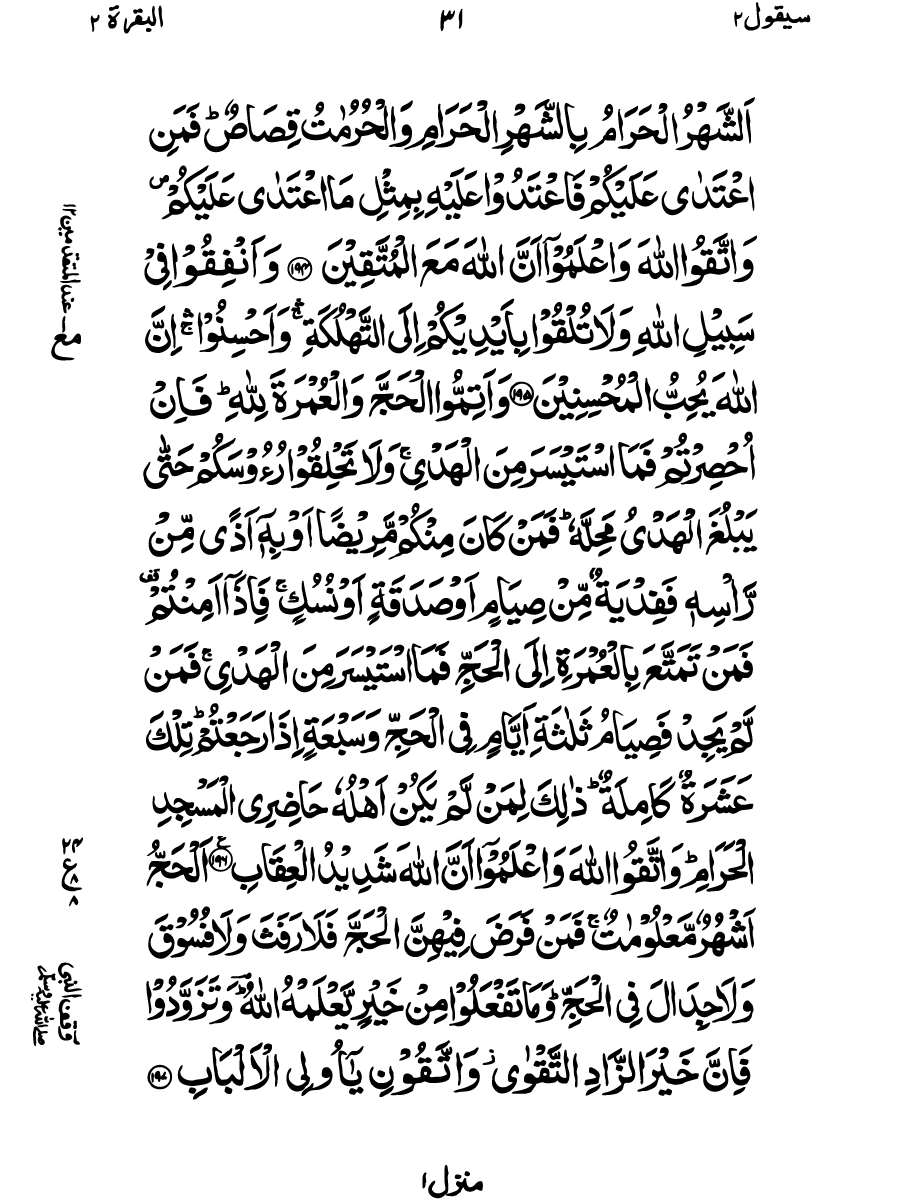 سيقول ٢
٣١
البقرة ٢
اَلشَّهْرُ الْحَرَامُ بِالشَّهْرِ الْحَرَامِ وَالْحُرُمٰتُ قِصَاصٌ ؕ فَمَنِ
اعْتَدٰى عَلَيْكُمْ فَاعْتَدُوْا عَلَيْهِ بِمِثْلِ مَا اعْتَدٰى عَلَيْكُمْ ۪
وَاتَّقُوا اللّٰهَ وَاعْلَمُوْۤا اَنَّ اللّٰهَ مَعَ الْمُتَّقِيْنَ ﴿۱۹۴﴾ وَاَنْفِقُوْا فِيْ
سَبِيْلِ اللّٰهِ وَلَا تُلْقُوْا بِاَيْدِيْكُمْ اِلَى التَّهْلُكَةِ ۛۚ وَاَحْسِنُوْا ۛۚ اِنَّ
اللّٰهَ يُحِبُّ الْمُحْسِنِيْنَ ﴿۱۹۵﴾ وَاَتِمُّوا الْحَجَّ وَالْعُمْرَةَ لِلّٰهِ ؕ فَاِنْ
اُحْصِرْتُمْ فَمَا اسْتَيْسَرَ مِنَ الْهَدْيِ ۚ وَلَا تَحْلِقُوْا رُءُوْسَكُمْ حَتّٰى
يَبْلُغَ الْهَدْيُ مَحِلَّهٗ ؕ فَمَنْ كَانَ مِنْكُمْ مَّرِيْضًا اَوْ بِهٖۤ اَذًى مِّنْ
رَّاْسِهٖ فَفِدْيَةٌ مِّنْ صِيَامٍ اَوْ صَدَقَةٍ اَوْ نُسُكٍ ۚ فَاِذَاۤ اَمِنْتُمْ ۥقف
فَمَنْ تَمَتَّعَ بِالْعُمْرَةِ اِلَى الْحَجِّ فَمَا اسْتَيْسَرَ مِنَ الْهَدْيِ ۚ فَمَنْ
لَّمْ يَجِدْ فَصِيَامُ ثَلٰثَةِ اَيَّامٍ فِي الْحَجِّ وَسَبْعَةٍ اِذَا رَجَعْتُمْ ؕ تِلْكَ
عَشَرَةٌ كَامِلَةٌ ؕ ذٰلِكَ لِمَنْ لَّمْ يَكُنْ اَهْلُهٗ حَاضِرِى الْمَسْجِدِ
الْحَرَامِ ؕ وَاتَّقُوا اللّٰهَ وَاعْلَمُوْۤا اَنَّ اللّٰهَ شَدِيْدُ الْعِقَابِ ﴿۱۹۶﴾ ع اَلْحَجُّ
اَشْهُرٌ مَّعْلُوْمٰتٌ ۚ فَمَنْ فَرَضَ فِيْهِنَّ الْحَجَّ فَلَا رَفَثَ وَلَا فُسُوْقَ
وَلَا جِدَالَ فِي الْحَجِّ ؕ وَمَا تَفْعَلُوْا مِنْ خَيْرٍ يَّعْلَمْهُ اللّٰهُ ؔؕ وَتَزَوَّدُوْا
فَاِنَّ خَيْرَ الزَّادِ التَّقْوٰى ۫ وَاتَّقُوْنِ يٰۤاُولِى الْاَلْبَابِ ﴿۱۹۷﴾
مع عند المتقدمين ١٢
وقف النبى
صلى الله عليه وسلم
منزل ١